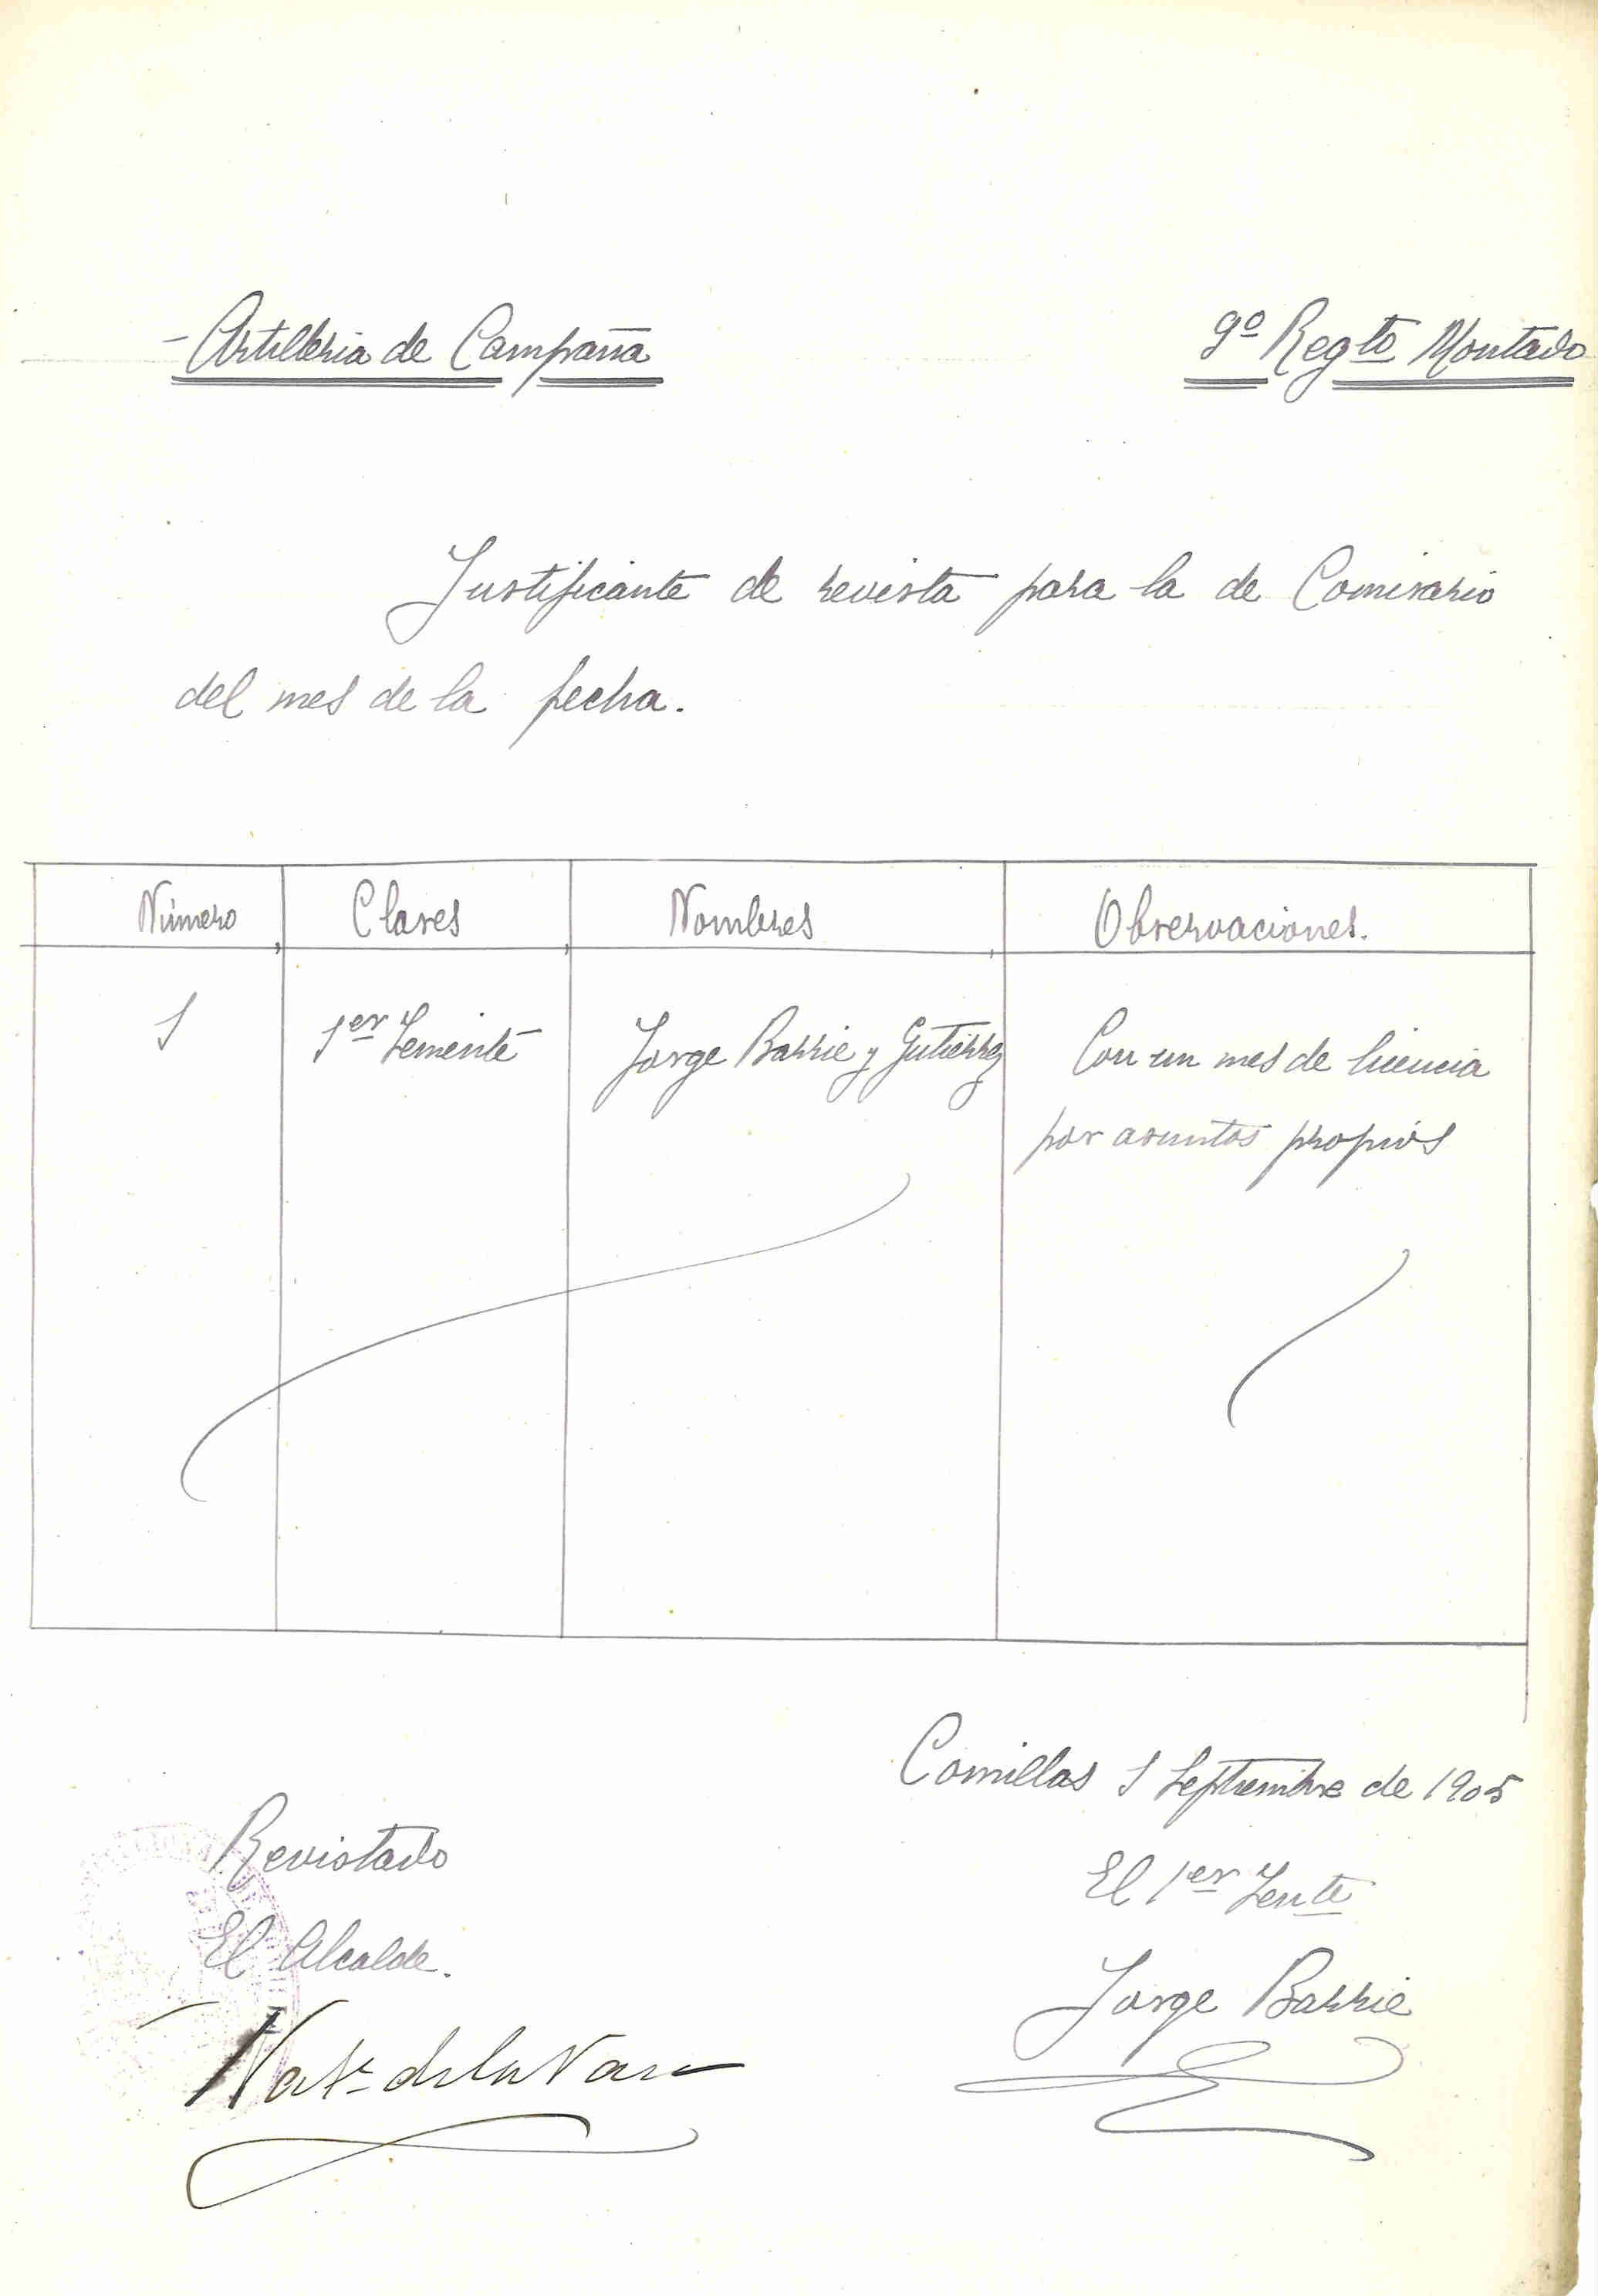 Artilleria de Campaña
9º Regto Montado
Justificante de revista para la de Comisario
del mes de la fecha.
Número Clases Nombres Observaciones.
1 1er Teniente Jorge Barrie y Gutiérrez Con un mes de licencia
por asuntos propios
Comillas 1 Septiembre de 1905
Revistado
El 1er Tente
El Alcalde.
Jorge Barrie
de la